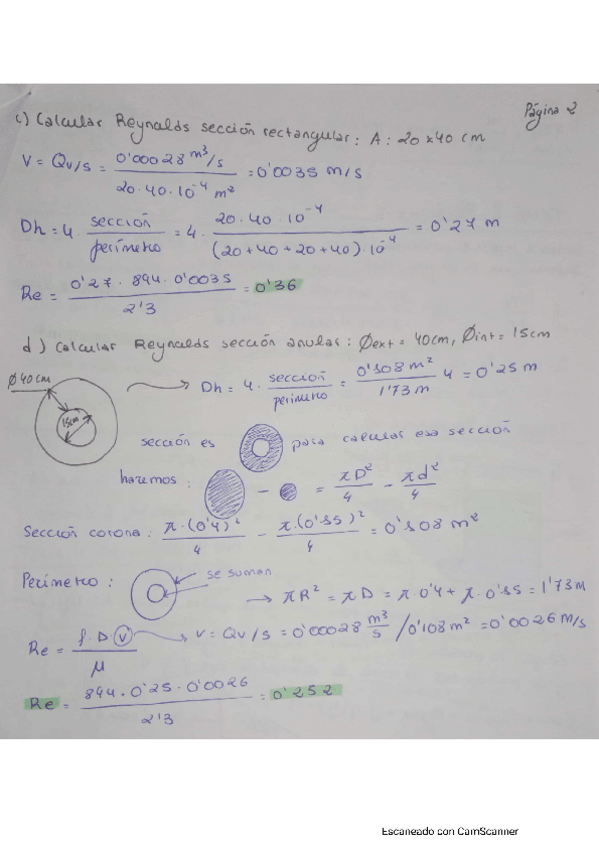 Página 2
c) Calcular Reynolds sección rectangular: A: 20x40 cm
V = Qv/s = 0'00028 m³/s / 20·40·10⁻⁴ m² = 0'0035 m/s
Dh = 4 · sección / perímetro = 4 · 20·40·10⁻⁴ / (20+40+20+40)·10⁻⁴ = 0'27 m
Re = 0'27 · 894 · 0'0035 / 2'3 = 0'36
d) Calcular Reynolds sección anular: Øext = 40cm, Øint = 15cm
Ø40cm
15cm
Dh = 4 · sección / perímetro = 0'108 m² / 1'73 m 4 = 0'25 m
sección es para calcular esa sección
haremos : - = πD²/4 - πd²/4
Sección corona : π·(0'4)²/4 - π·(0'15)²/4 = 0'108 m²
Perímetro : se suman
→ πR² = πD = π·0'4 + π·0'15 = 1'73 m
Re = ρ·D·v / μ → v = Qv/s = 0'00028 m³/s / 0'108 m² = 0'0026 m/s
Re = 894·0'25·0'0026 / 2'3 = 0'252
Escaneado con CamScanner